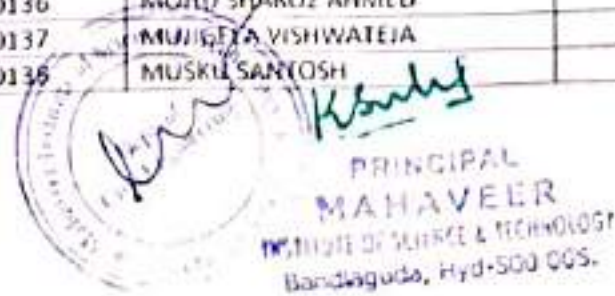 0136 MOHD SHAROZ AHMED
0137 MUNIGELA VISHWATEJA
0138 MUSKU SANTOSH
PRINCIPAL
MAHAVEER
INSTITUTE OF SCIENCE & TECHNOLOGY
Bandlaguda, Hyd-500 005.